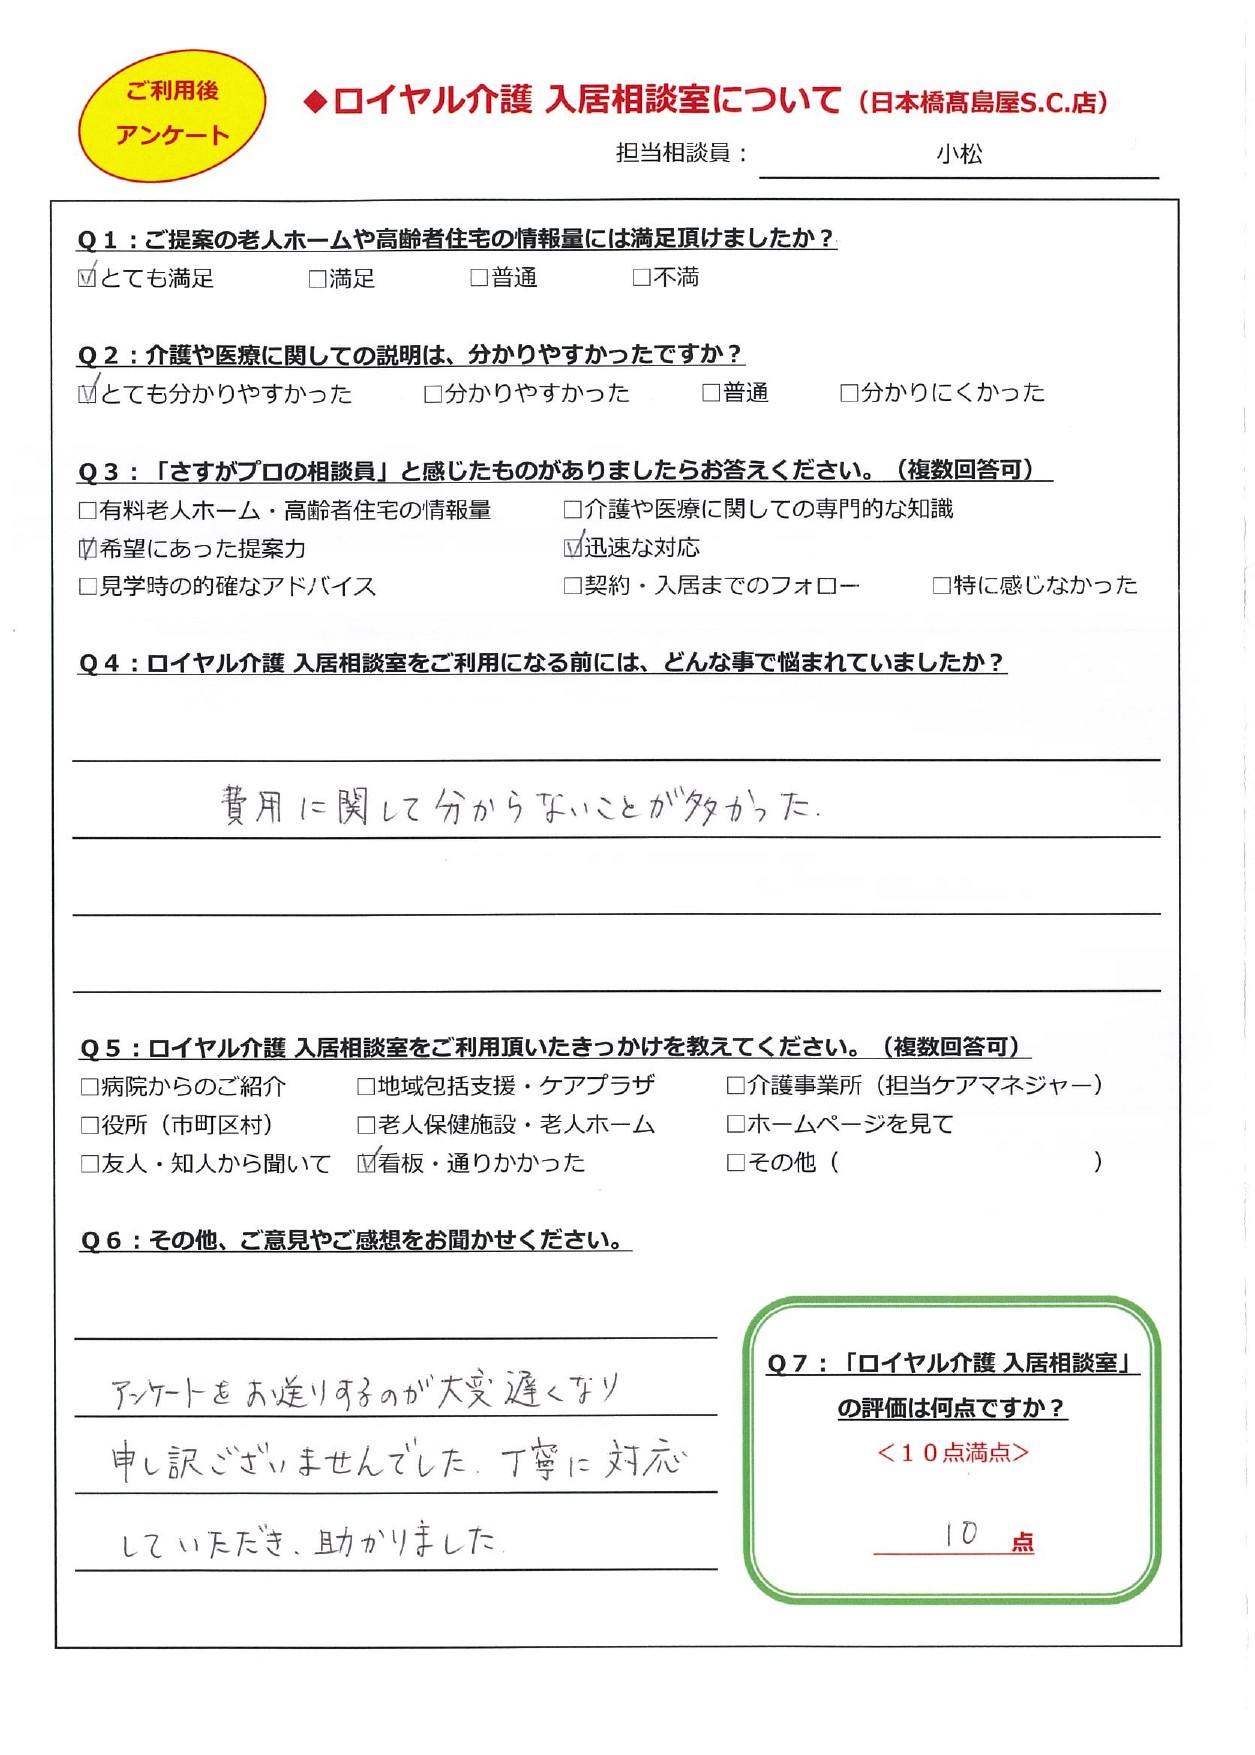 ご利用後
アンケート
◆ロイヤル介護 入居相談室について（日本橋髙島屋S.C.店）
担当相談員： 小松
Q1：ご提案の老人ホームや高齢者住宅の情報量には満足頂けましたか？
☑とても満足 □満足 □普通 □不満
Q2：介護や医療に関しての説明は、分かりやすかったですか？
☑とても分かりやすかった □分かりやすかった □普通 □分かりにくかった
Q3：「さすがプロの相談員」と感じたものがありましたらお答えください。（複数回答可）
□有料老人ホーム・高齢者住宅の情報量 □介護や医療に関しての専門的な知識
☑希望にあった提案力 ☑迅速な対応
□見学時の的確なアドバイス □契約・入居までのフォロー □特に感じなかった
Q4：ロイヤル介護 入居相談室をご利用になる前には、どんな事で悩まれていましたか？
費用に関して分からないことが多かった.
Q5：ロイヤル介護 入居相談室をご利用頂いたきっかけを教えてください。（複数回答可）
□病院からのご紹介 □地域包括支援・ケアプラザ □介護事業所（担当ケアマネジャー）
□役所（市町区村） □老人保健施設・老人ホーム □ホームページを見て
□友人・知人から聞いて ☑看板・通りかかった □その他（ ）
Q6：その他、ご意見やご感想をお聞かせください。
アンケートをお送りするのが大変遅くなり
申し訳ございませんでした. 丁寧に対応
していただき、助かりました.
Q7：「ロイヤル介護 入居相談室」
の評価は何点ですか？
＜１０点満点＞
10 点